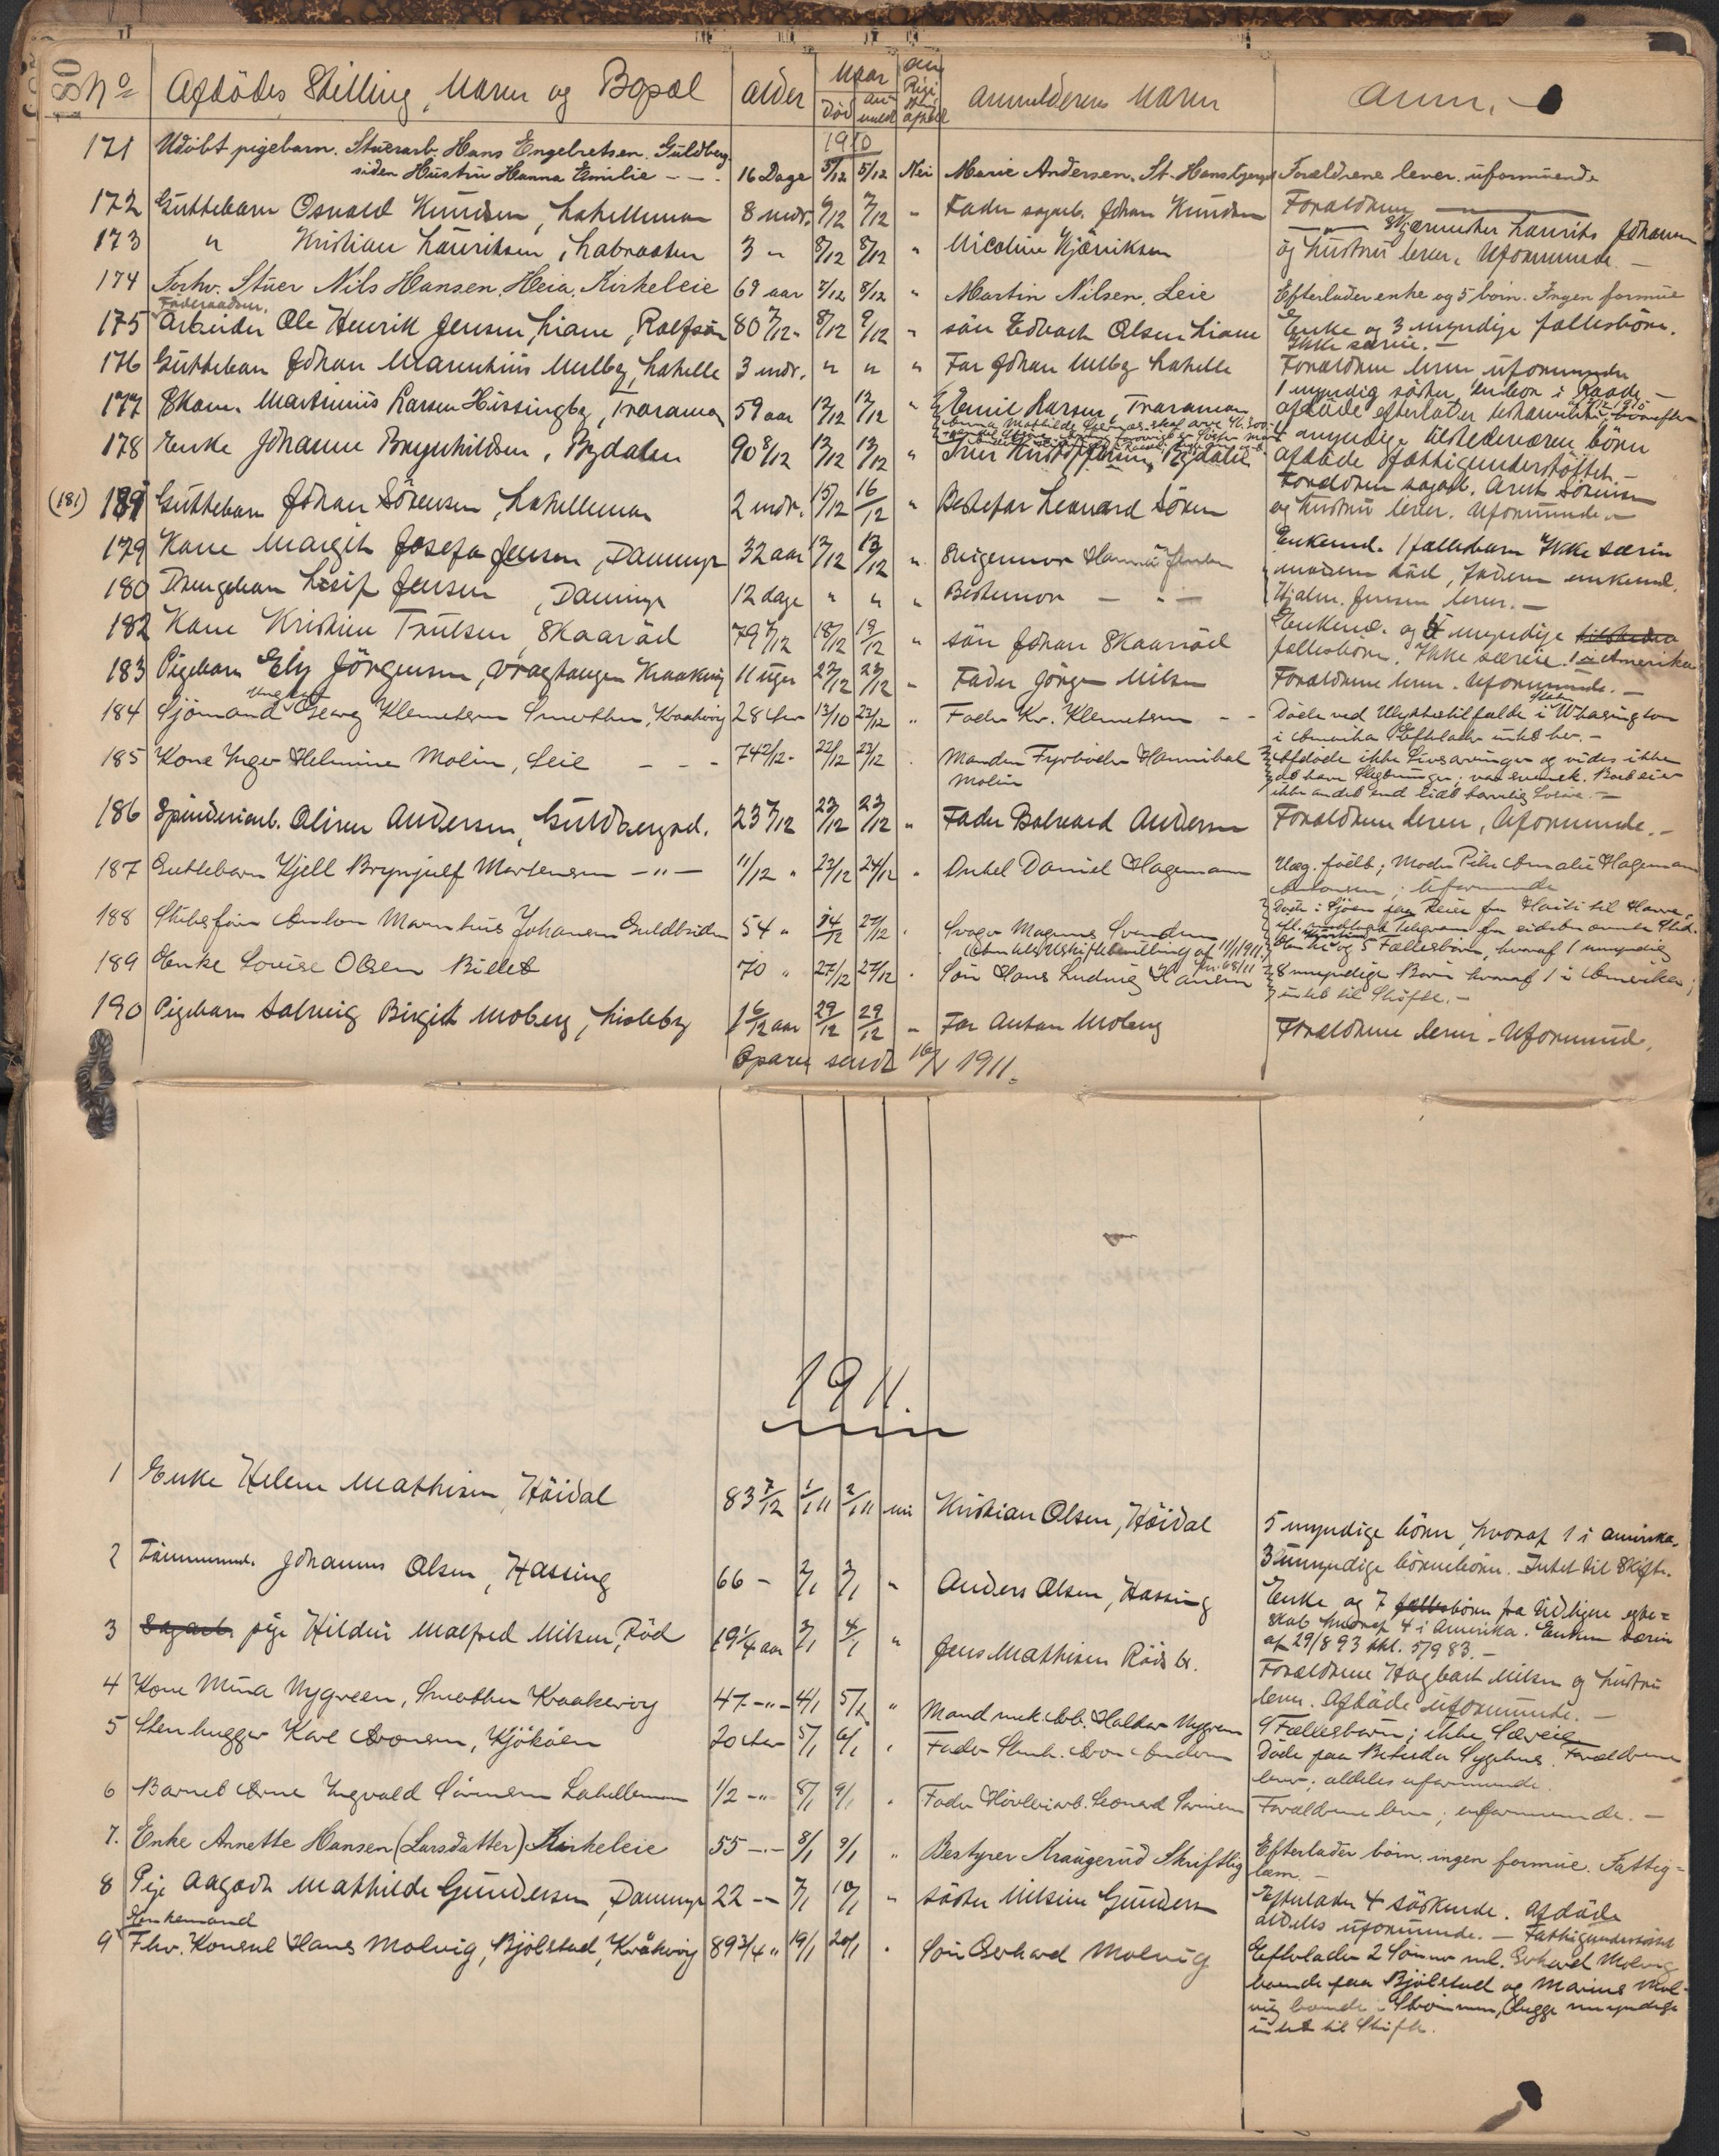 180
No Afdödes Stilling, Navn og Bopæl Alder Naar Død anmeldt 1910 Anmelderens Navn Anm.
171 Udöbt pigebarn. Stuerarb. Hans Engebretsen. Guldberg
siden Hustru Hanna Emilie 16 Dage 5/12 5/12 Nei Marie Andersen. St. Hansbjerget Forældrene lever. uformuende
172 Guttebarn Osvald Knudsen, Lahellemoen 8 mdr. 6/12 7/12 " Fader sagarb. Johan Knudsen Forældrene
173 " Kristian Lauritsen, Labraaten 3 " 8/12 8/12 " Nicoline Hjæriksen Skjærmester Laurits Johansen
og hustru lever. Uformuende. -
174 Forhv. Stuer Nils Hansen. Heia. Kirkeleie 69 aar 7/12 8/12 " Martin Nilsen. Leie Efterlader enke og 5 börn. Ingen formue
Föderaadsm.
175 Arbeider Ole Henrik Jensen Liane, Rolfsön 80 7/12 8/12 9/12 " sön Edvart Olsen Liane Enke og 3 myndige fællesbörn.
Ikke særeie. -
176 Guttebarn Johan Marentius Melby, Lahelle 3 mdr. " " " Far Johan Melby Lahelle Forældrene lever uformuende
177 Skom. Martinius Larsen Hissingby, Traramoen 59 aar 12/12 12/12 " Emil Larsen, Traramoen 1 myndig söster, enbor i Raade -
afdöde efterlader
178 Enke Johanne Brynhildsen, Bydalen 90 8/12 12/12 13/12 " Iver Kristoffersen, Bydalen 4 myndige tilstedeværen börn
afdöde fattigunderstöttet. -
(181) 189 Guttebarn Johan Sörensen, Lahellemoen 2 mdr. 15/12 16/12 " Bestefar Leonard Sören Forældrene sagarb. Arnt Sörensen
og hustru lever. Uformuende. -
179 Kone Margit Josefa Jensen, Dammyr 32 aar 12/12 13/12 " Svigermor Hanna Jensen Enkemd. 1 fællesbarn Ikke særeie
180 Drengebarn Leif Jensen, Dammyr 12 dage " " " Bestemor — " — moderen död, faderen enkemd.
Hjalm. Jensen lever. -
182 Kone Kristine Trulsen, Skaaröd 79 7/12 18/12 19/12 " sön Johan Skaaröd Enkemd. og myndige tilstedev
fællesbörn. Ikke særeie. 1 i Amerika
183 Pigebarn Ely Jörgensen, Vraghaugen Kraakeröy 11 uger 22/12 23/12 " Fader Jörgen Nilsen Forældrene lever. Uformuende. -
Ungkarl
184 Sjömand Georg Klemetsen Smerthu, Kraakeröy 28 Aar 13/10 23/12 " Fader Kr. Klemetsen Døde ved Ulykkestilfælde i Staten Whasington
i Amerika Efterlader intet her. -
185 Kone Inger Helmine Molin, Leie 74 2/12 22/12 23/12 Manden Fyrböder Hannibal
Molin Afdøde ikke Livsarvinger og vides ikke
at have Slegtninger; var svensk. Boet eier
ikke andet end lidt harvelig Løsøre. -
186 Spinderiarb. Olivia Andersen, Guldbergsd. 23 5/12 22/12 23/12 " Fader Bolvard Andersen Forældrene lever, Uformuende. -
187 Guttebarn Kjell Brynjulf Mortensen - " - 11/12 " 23/12 24/12 " Onkel Daniel Hagemann Uæg. født; Moder Pike Amalie Hagemann
Antonsen; Uformuende
188 Skibsfører Anton Marentius Johansen Guldbrid 54 " 24/12 27/12 " Svoger Magnus Svendsen Døde i Sjøen paa Reise fra Haiti til Havre
Enke og 5 Fællesbörn, hvoraf 1 umyndig
189 Enke Lovise Olsen Billet 70 " 27/12 27/12 " Søn Hans Ludvig Hansen 8 myndige Børn hvoraf 1 i Amerika;
intet til Skifte. -
190 Pigebarn Solveig Birgit Moberg, Lisleby 1 6/12 aar 29/12 29/12 " Far Anton Moberg Forældrene lever. Uformuende.
Opgave sendt 16/1 1911.
1911.
1 Enke Helene Mathisen, Höidal 83 7/12 1/1 11 2/1 11 nei Kristian Olsen, Höidal 5 myndige börn, hvoraf 1 i Amerika,
3 umyndige börnebörn. Intet til Skifte.
2 Tömmermd. Johannes Olsen, Hassing 66 - 2/1 3/1 " Anders Olsen, Hassing Enke og 7 fællesbörn fra tidligere egte=
skab hvoraf 4 i Amerika. Enken særeie
af 29/8 93 tkl. 5/9 83. -
3 Sagarb. pige Hildur Malfred Nilsen, Röd 19 1/4 aar 3/1 4/1 " Jens Mathisen Röds br. Forældrene Hagbart Nilsen og hustru
lever. Afdöde uformuende. -
4 Kone Mina Nygreen, Smerthu Kraakeröy 47 - " - 4/1 5/1 " Mand mek. Arb. Halvor Nygreen 9 Fællesbørn; ikke Særeie
5 Stenhugger Karl Aronsen, Kjökøen 20 Aar 5/1 6/1 " Fader Stenh. Aron Andersen Døde paa Betesda Sygehus. Forældrene
lever; aldeles uformuende.
6 Barnet Arne Ingvald Sørensen Lahellemoen 1/2 - " 8/1 9/1 " Fader Høvleriarb. Leonard Sørensen Forældrene lever; uformuende. -
7. Enke Annette Hansen (Larsdatter) Kirkeleie 55 - " - 8/1 9/1 " Bestyrer Kraugerud Skriftlig Efterlader börn. ingen formue. Fattig=
lem. -
8 Pige Aagodt Mathilde Gundersen, Dammyr 22 - - 7/1 10/1 " söster Nilsine Gunders Efterlader 4 söskende. Afdöde
aldeles uformuende. - Fattigunderstöttet
Enkemand
9 Fhv. Konsul Hans Molvig, Bjölstad, Kråkeröy 89 3/4 " 19/1 20/1 " Søn Gerhard Molvig Efterlader 2 Sønner nl. Gerhard Molvig
boende paa Bjölstad og Marius Mol-
vig boende i Strömmen, begge myndige
intet til Skifte.